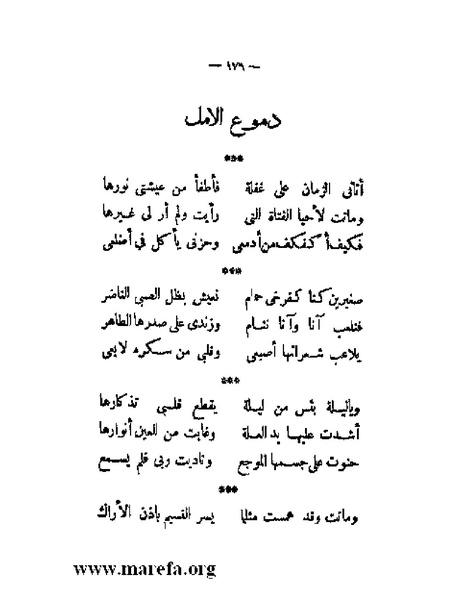 — ١٧٩ —
دموع الامل
***
أتانى الزمان على غفلة فأطفأ من عيشتى نورها
وماتت لأحيا الفتاة التى رأيت ولم أر لى غيرها
فكيف أكفكف من أدمعى وحزنى يأكل فى أضلعى
***
صغيرين كنا كفرخى حمام نعيش بظل الصبى الناضر
فنلعب آنا وآنا ننام وزندى على صدرها الطاهر
يلاعب شعراتها أصبعى وقلبى من سكره لا يعى
***
وياليلة بئس من ليلة يقطع قلبى تذكارها
أشدت عليها يد العلة وغابت من العين أنوارها
حنوت على جسمها الموجع وناديت ربى فلم يسمع
***
وماتت وقد همست مثلما يسر النسيم باذن الأراك
www.marefa.org